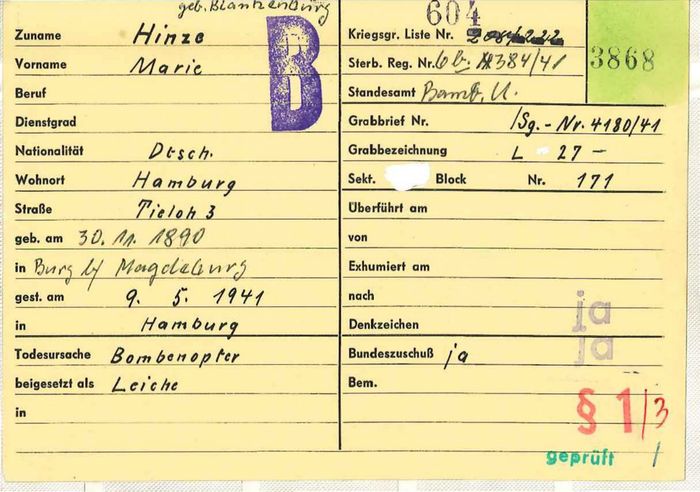 geb. Blankenburg
Zuname Hinze
Vorname Marie
B
Beruf
Dienstgrad
Nationalität Dtsch.
Wohnort Hamburg
Straße Tieloh 3
geb. am 30. 11. 1890
in Burg b/ Magdeburg
gest. am 9. 5. 1941
in Hamburg
Todesursache Bombenopfer
beigesetzt als Leiche
in
604
Kriegsgr. Liste Nr.
Sterb. Reg. Nr. 384/41
3868
Standesamt Bamb. U.
Grabbrief Nr. /Sg.-Nr. 4180/41
Grabbezeichnung L 27 -
Sekt. Block Nr. 171
Überführt am
von
Exhumiert am
nach
ja
Denkzeichen
ja
Bundeszuschuß ja
Bem.
§ 1/3
geprüft /